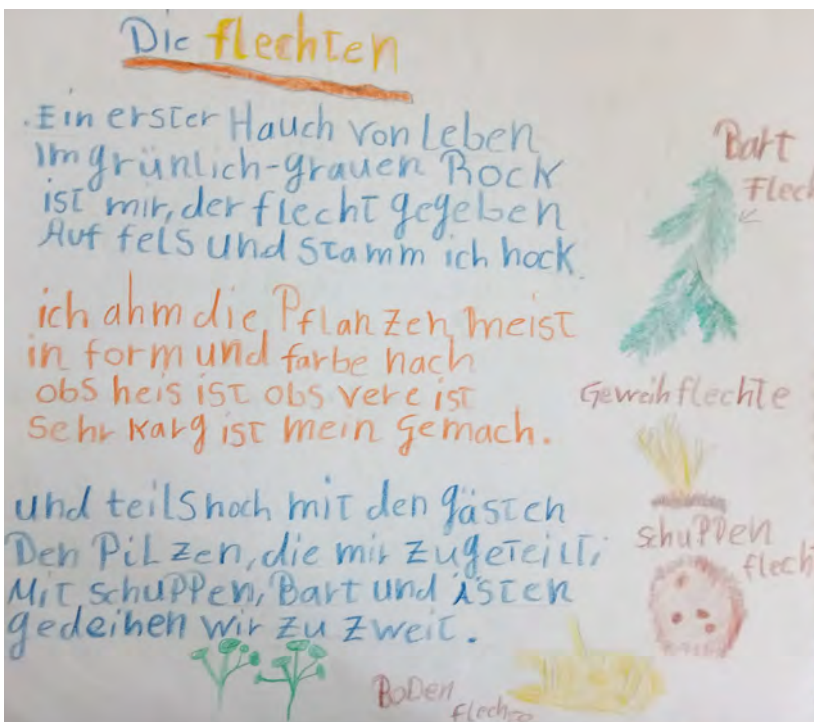 Die flechten
Ein erster Hauch von Leben
Im grünlich-grauen Rock
ist mir, der flecht gegeben
Auf fels und stamm ich hock.
ich ahm die Pflanzen meist
in form und farbe nach
obs heis ist obs vere ist
Sehr karg ist mein Gemach.
und teils noch mit den gästen
Den Pilzen, die mir zugeteilt;
Mit schuppen, Bart und ästen
gedeihen wir zu zweit.
Bart
Flech
Geweihflechte
schuppen
flech
BoDen